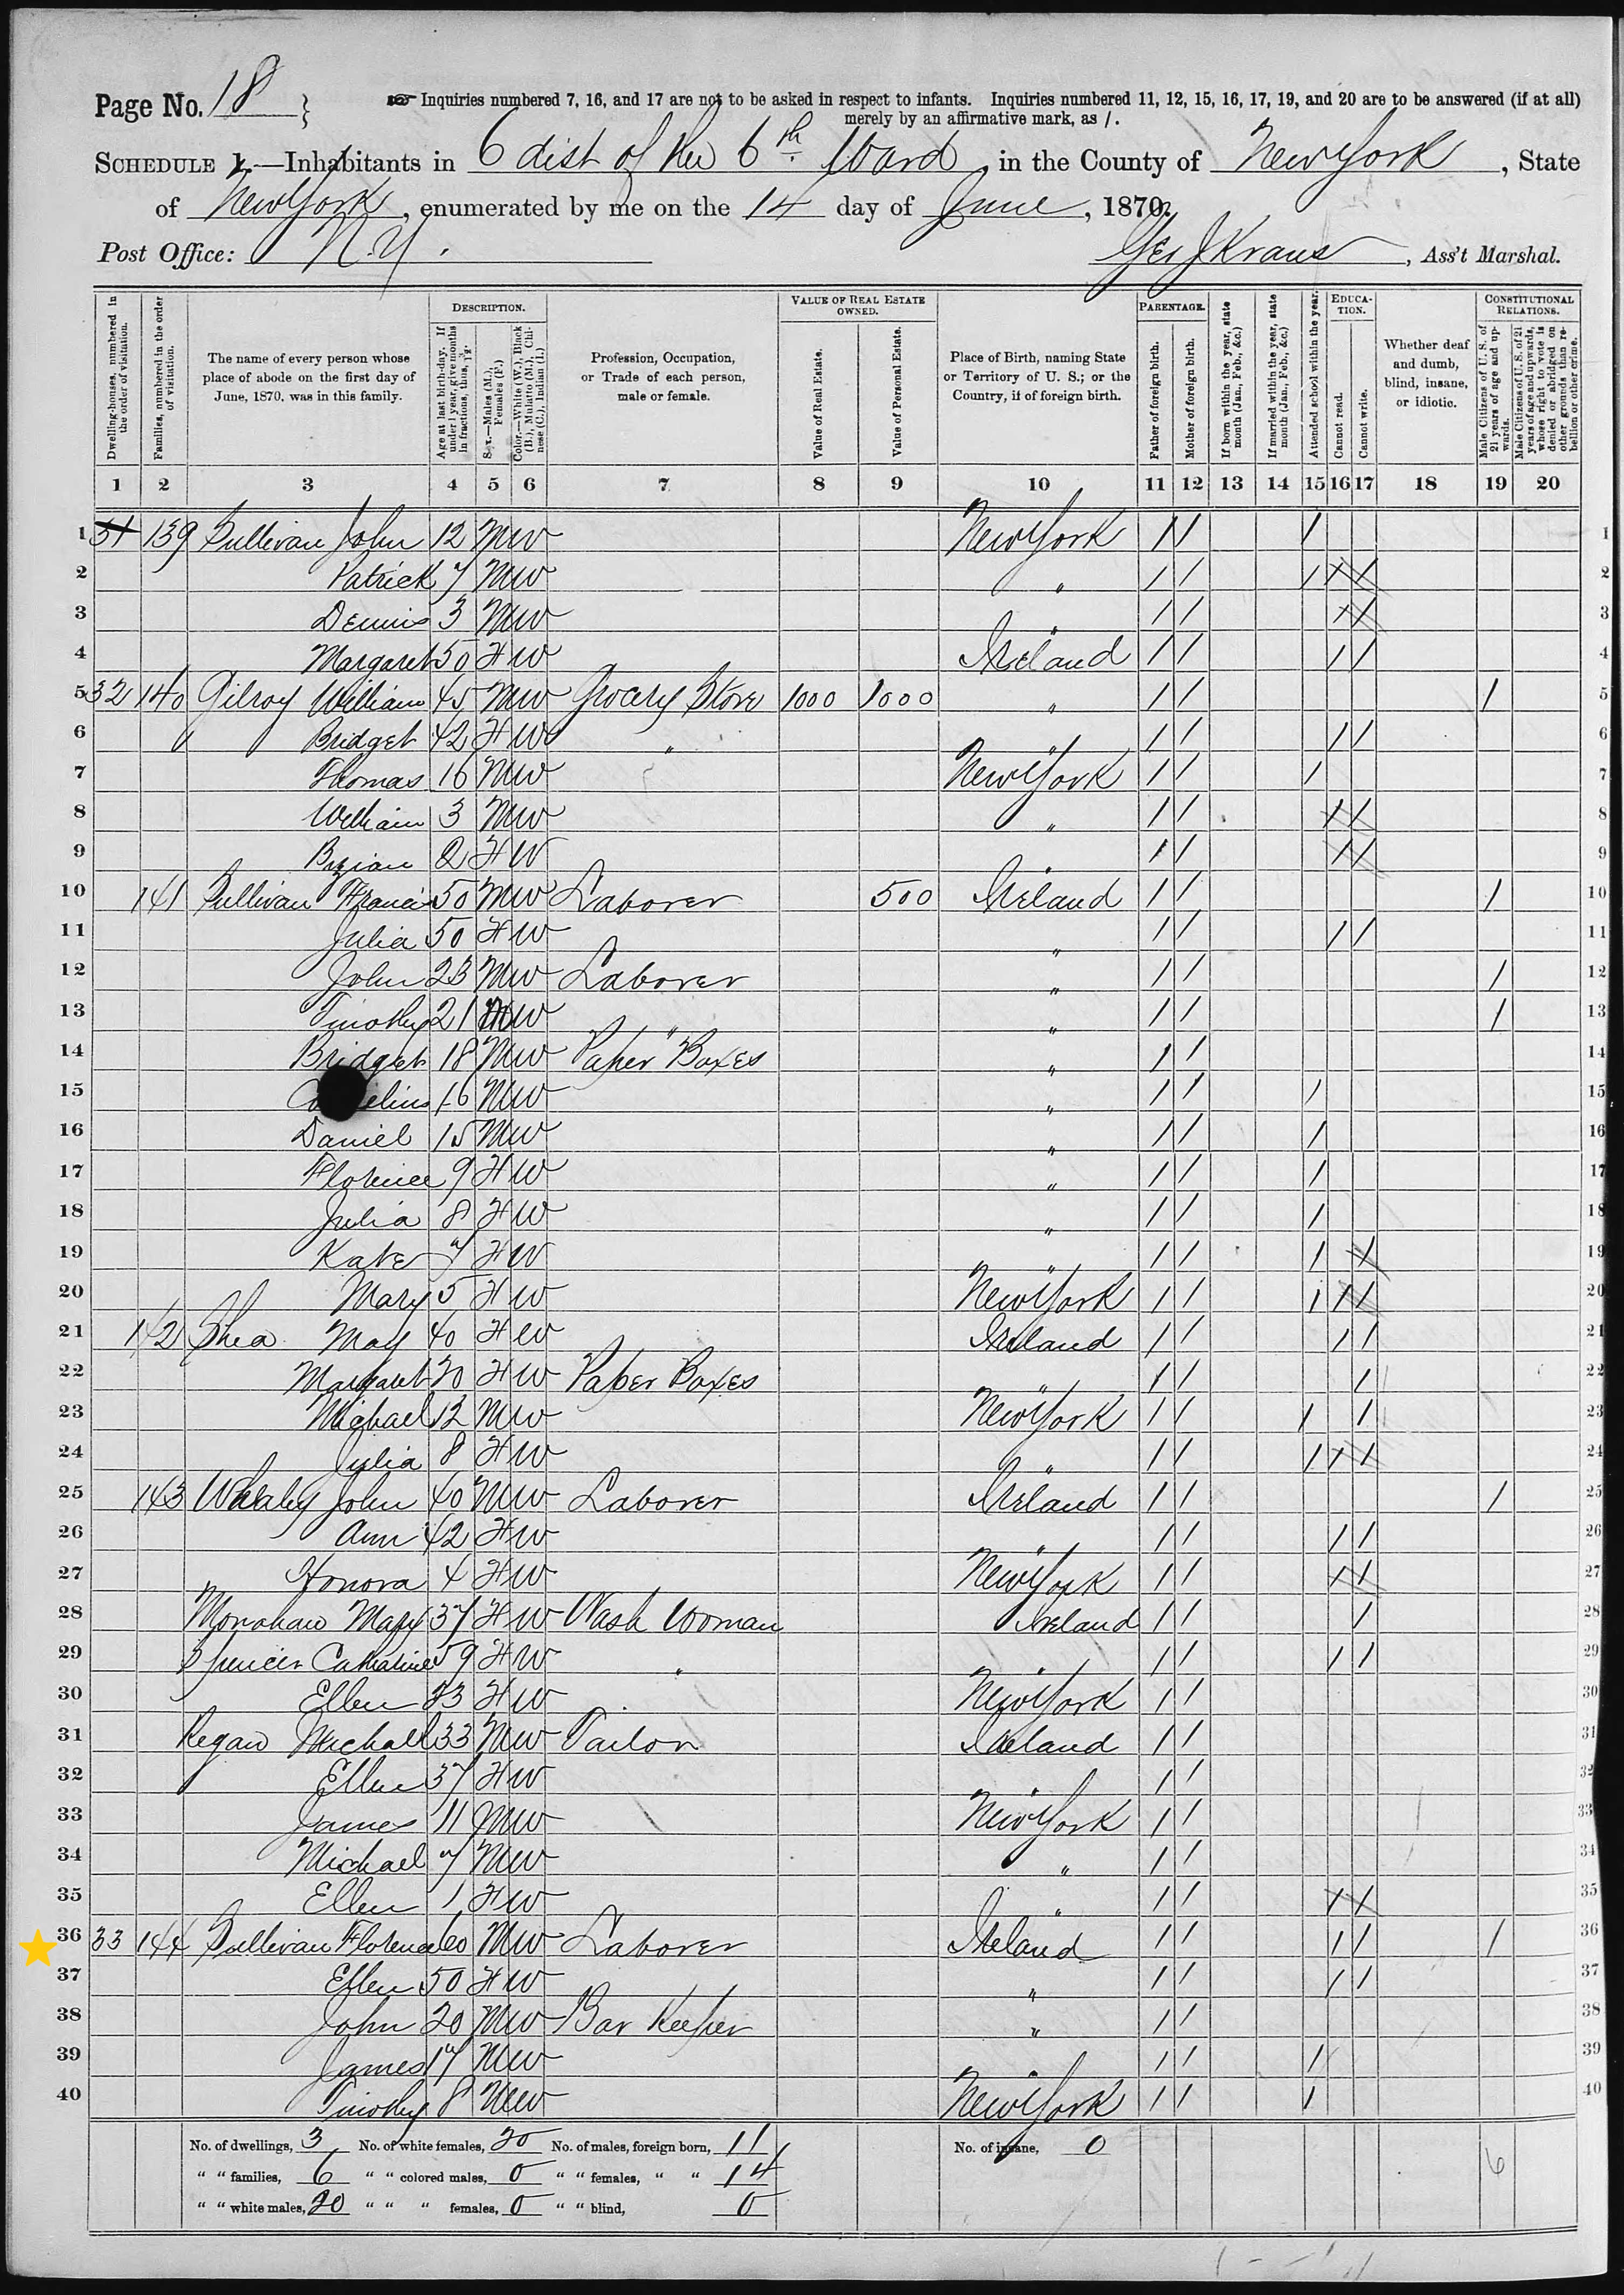 Page No. 18
☞ Inquiries numbered 7, 16, and 17 are not to be asked in respect to infants. Inquiries numbered 11, 12, 15, 16, 17, 19, and 20 are to be answered (if at all)
merely by an affirmative mark, as /.
SCHEDULE 1.—Inhabitants in 6 dist of the 6th Ward, in the County of New York, State
of New York, enumerated by me on the 14 day of June, 1870.
Post Office: N.Y. Geo J Kraus, Ass't Marshal.
Dwelling-houses, numbered in the order of visitation.
Families, numbered in the order of visitation.
The name of every person whose place of abode on the first day of June, 1870, was in this family.
DESCRIPTION.
Age at last birth-day. If under 1 year, give months in fractions, thus, 3/12.
Sex.—Males (M.), Females (F.)
Color.—White (W.), Black (B.), Mulatto (M.), Chinese (C.), Indian (I.)
Profession, Occupation, or Trade of each person, male or female.
VALUE OF REAL ESTATE OWNED.
Value of Real Estate.
Value of Personal Estate.
Place of Birth, naming State or Territory of U. S.; or the Country, if of foreign birth.
PARENTAGE.
Father of foreign birth.
Mother of foreign birth.
If born within the year, state month (Jan., Feb., &c.)
If married within the year, state month (Jan., Feb., &c.)
Attended school within the year.
EDUCATION.
Cannot read.
Cannot write.
Whether deaf and dumb, blind, insane, or idiotic.
CONSTITUTIONAL RELATIONS.
Male Citizens of U. S. of 21 years of age and upwards.
Male Citizens of U. S. of 21 years of age and upwards, whose right to vote is denied or abridged on other grounds than rebellion or other crime.
1 2 3 4 5 6 7 8 9 10 11 12 13 14 15 16 17 18 19 20
1 31 139 Sullivan John 12 M W New York / / / 1
2 Patrick 7 M W " / / / / / 2
3 Dennis 3 M W " / / / / 3
4 Margaret 50 F W Ireland / / / / 4
5 32 140 Gilroy William 45 M W Grocery Store 1000 1000 " / / / 5
6 Bridget 42 F W " " / / / / 6
7 Thomas 16 M W New York / / / 7
8 William 3 M W " / / / / 8
9 2 F W " / / / / 9
10 141 Sullivan Francis 50 M W Laborer 500 Ireland / / / 10
11 Julia 50 F W " / / / / 11
12 John 23 M W Laborer " / / / 12
13 Timothy 21 M W " " / / / 13
14 Bridget 18 M W Paper Boxes " / / 14
15 16 M W " / / / 15
16 Daniel 15 M W " / / / 16
17 Florence 9 F W " / / / 17
18 Julia 8 F W " / / / 18
19 Kate 7 F W " / / / / 19
20 Mary 5 F W New York / / / / / 20
21 142 Shea May 40 F W Ireland / / / / 21
22 Margaret 20 F W Paper Boxes " / / / 22
23 Michael 12 M W New York / / / / 23
24 Julia 8 F W " / / / / / 24
25 143 John 40 M W Laborer Ireland / / / 25
26 Ann 42 F W " / / / / 26
27 Honora 4 F W New York / / / / 27
28 Monahan Mary 37 F W Wash Woman Ireland / / / 28
29 Spencer Catharine 59 F W " " / / / / 29
30 Ellen 23 F W New York / / 30
31 Regan Michael 33 M W Tailor Ireland / / 31
32 Ellen 37 F W " / / 32
33 James 11 M W New York / / 33
34 Michael 7 M W " / / 34
35 Ellen 1 F W " / / / / 35
36 33 144 Sullivan Florence 60 M W Laborer Ireland / / / / / 36
37 Ellen 50 F W " / / / / 37
38 John 20 M W Bar Keeper " / / 38
39 James 17 M W " / / / 39
40 Timothy 8 M W New York / / / 40
No. of dwellings, 3 No. of white females, 20 No. of males, foreign born, 11 No. of insane, 0
" " families, 6 " " colored males, 0 " " females, " " 14 6
" " white males, 20 " " " females, 0 " " blind, 0